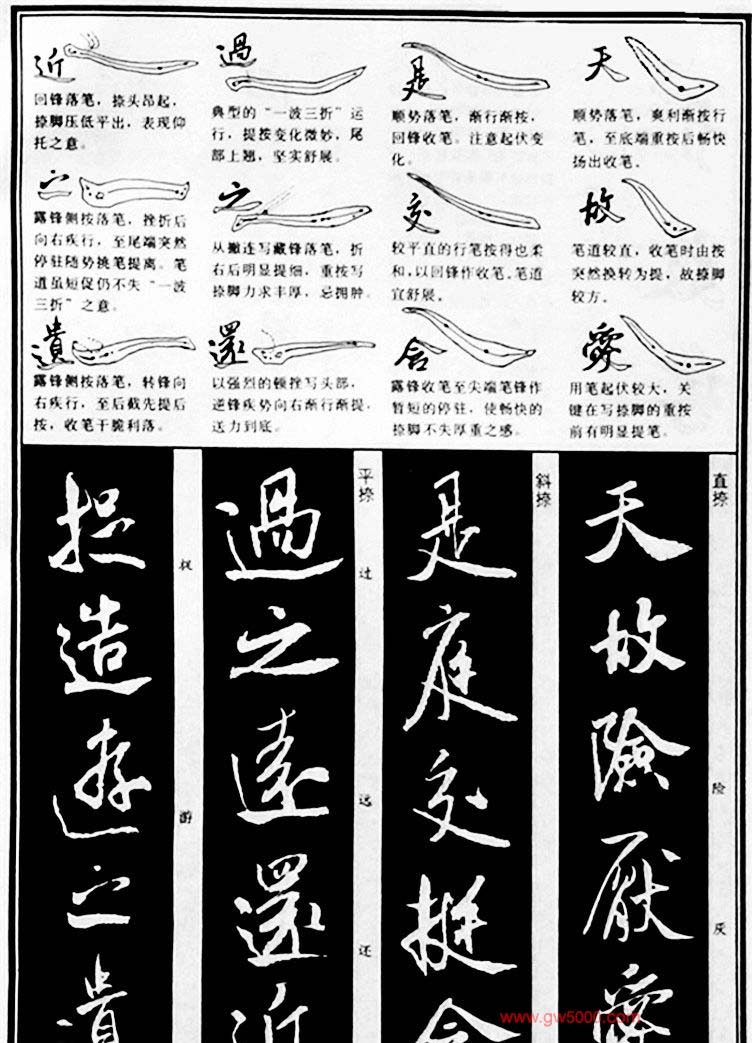 天
顺势落笔，爽利渐按行
笔，至底端重按后畅快
扬出收笔。
故
笔道较直，收笔时由按
突然换转为提，故捺脚
较方。
愛
用笔起伏较大，关
键在写捺脚的重按
前有明显提笔。
是
顺势落笔，渐行渐按，
回锋收笔。注意起伏变
化。
交
较平直的行笔按得也柔
和，以回锋作收笔。笔道
宜舒展。
含
露锋收笔至尖端笔锋作
暂短的停驻，使畅快的
捺脚不失厚重之感。
過
典型的“一波三折”运
行，提按变化微妙，尾
部上翘，坚实舒展。
之
从撇连写藏锋落笔，折
右后明显提细，重按写
捺脚力求丰厚，忌拥肿。
還
以强烈的顿挫写头部，
逆锋疾势向右渐行渐提，
送力到底。
近
回锋落笔，捺头昂起，
捺脚压低平出，表现仰
托之意。
之
露锋侧按落笔，挫折后
向右疾行，至尾端突然
停驻随势挑笔提离。笔
道虽短促仍不失“一波
三折”之意。
遺
露锋侧按落笔，转锋向
右疾行，至后截先提后
按，收笔干脆利落。
直捺
险
厌
天故險厭愛
斜捺
是庭交挺含
平捺
过
远
还
過之遠還近
游
捉造遊之遺
www.gw5000.com